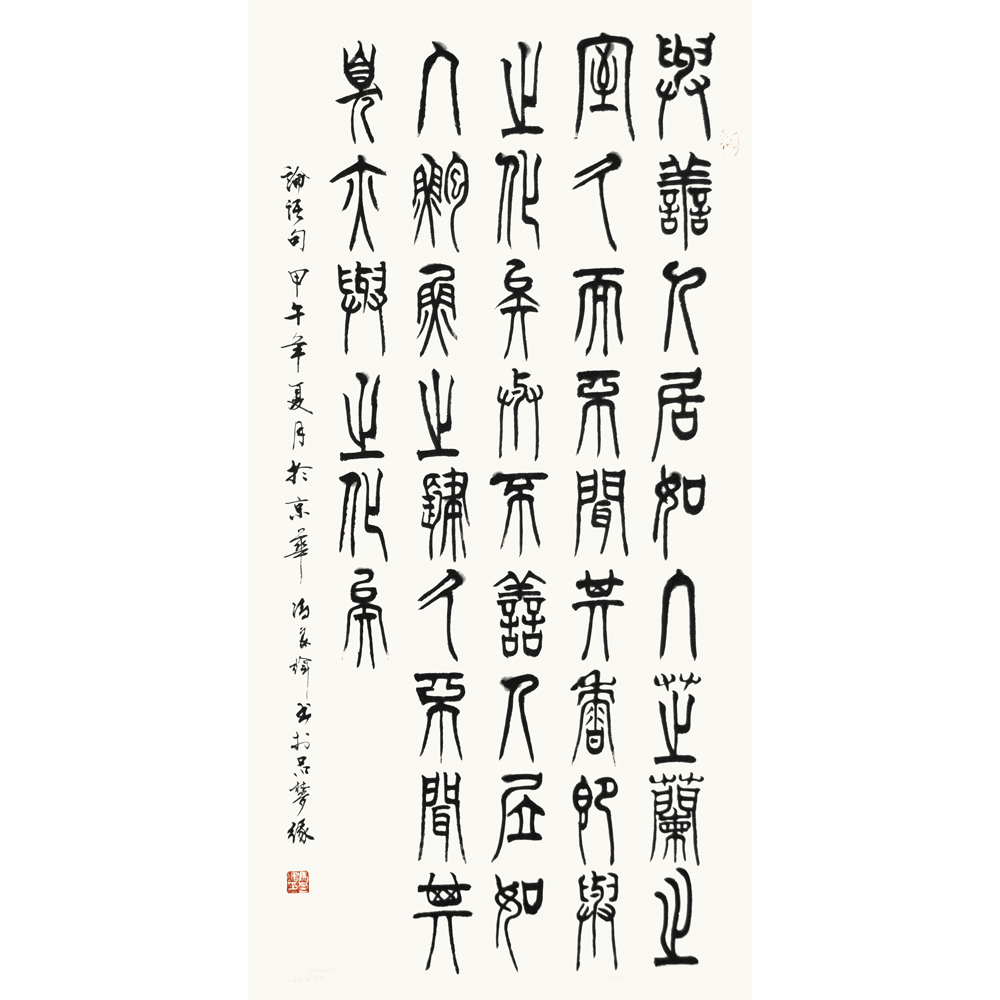 與善人居如入芝蘭之
室久而不聞其香即與
之化矣與不善人居如
入鮑魚之肆久不聞其
臭亦與之化矣
論語句 甲午年夏月於京華 馮 書於品夢緣